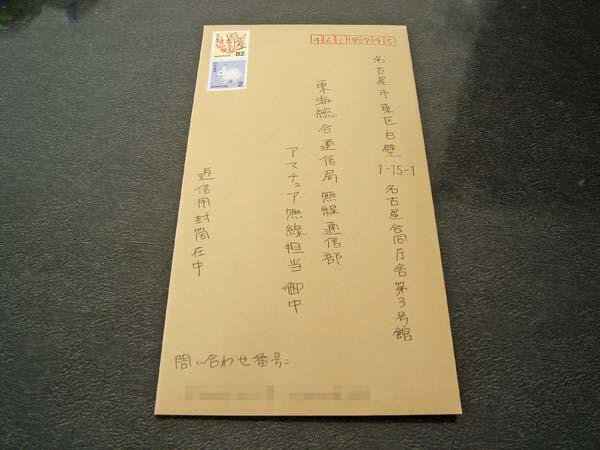 4618795
名古屋市東区白壁1-15-1名古屋合同庁舎第3号館
東海総合通信局無線通信部
アマチュア無線担当御中
返信用封筒在中
問い合わせ番号:
82
2